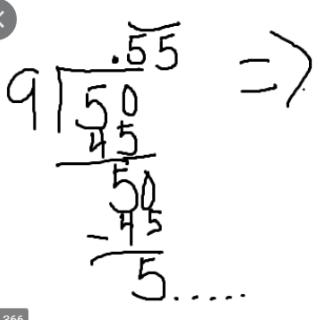 .55
9 50 =>
45
50
- 45
5......